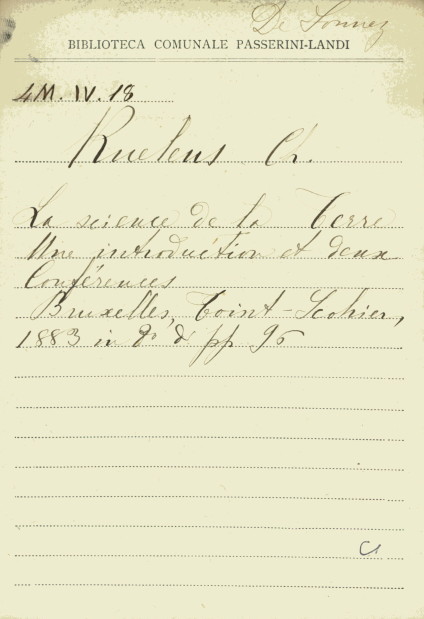 De
BIBLIOTECA COMUNALE PASSERINI-LANDI
4M. IV. 18
Ruelens Ch.
La science de la Terre
Une introduction et deux
Conférences
Bruxelles, Toint-Scohier,
1883 in 8º d pp 96